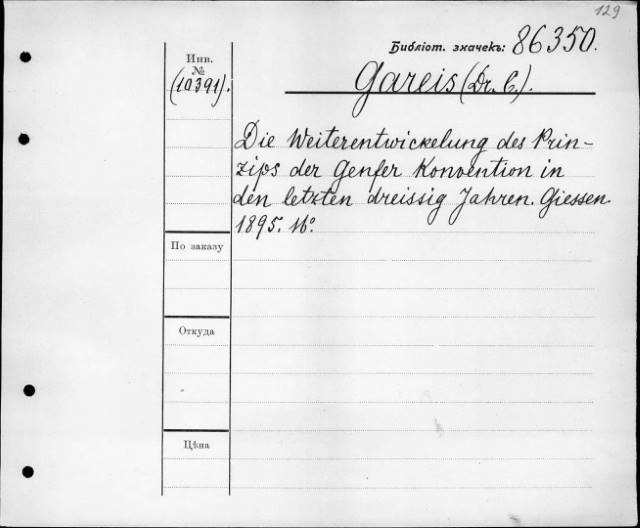 129
Библіот. значекъ: 86350.
Инв.
№
(10391).
Gareis (Dr. C.).
Die Weiterentwickelung des Prin-
zips der Genfer Konvention in
den letzten dreissig Jahren. Giessen.
1895. 16°.
По заказу
Откуда
Цѣна